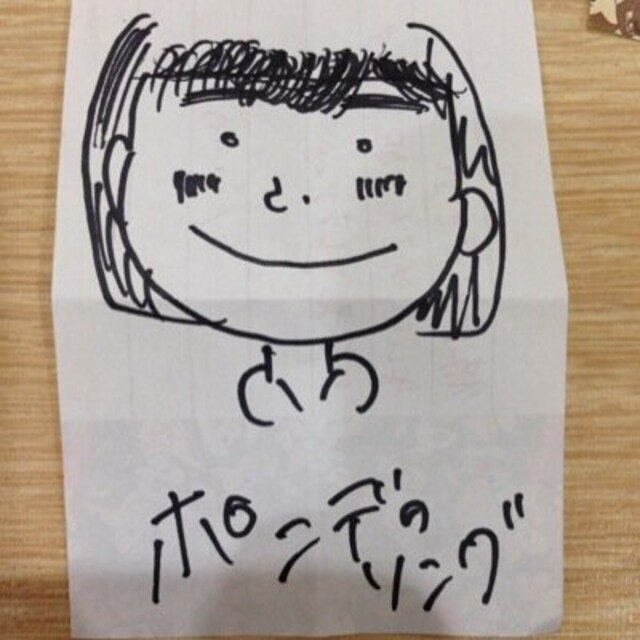 ポンデの
リング